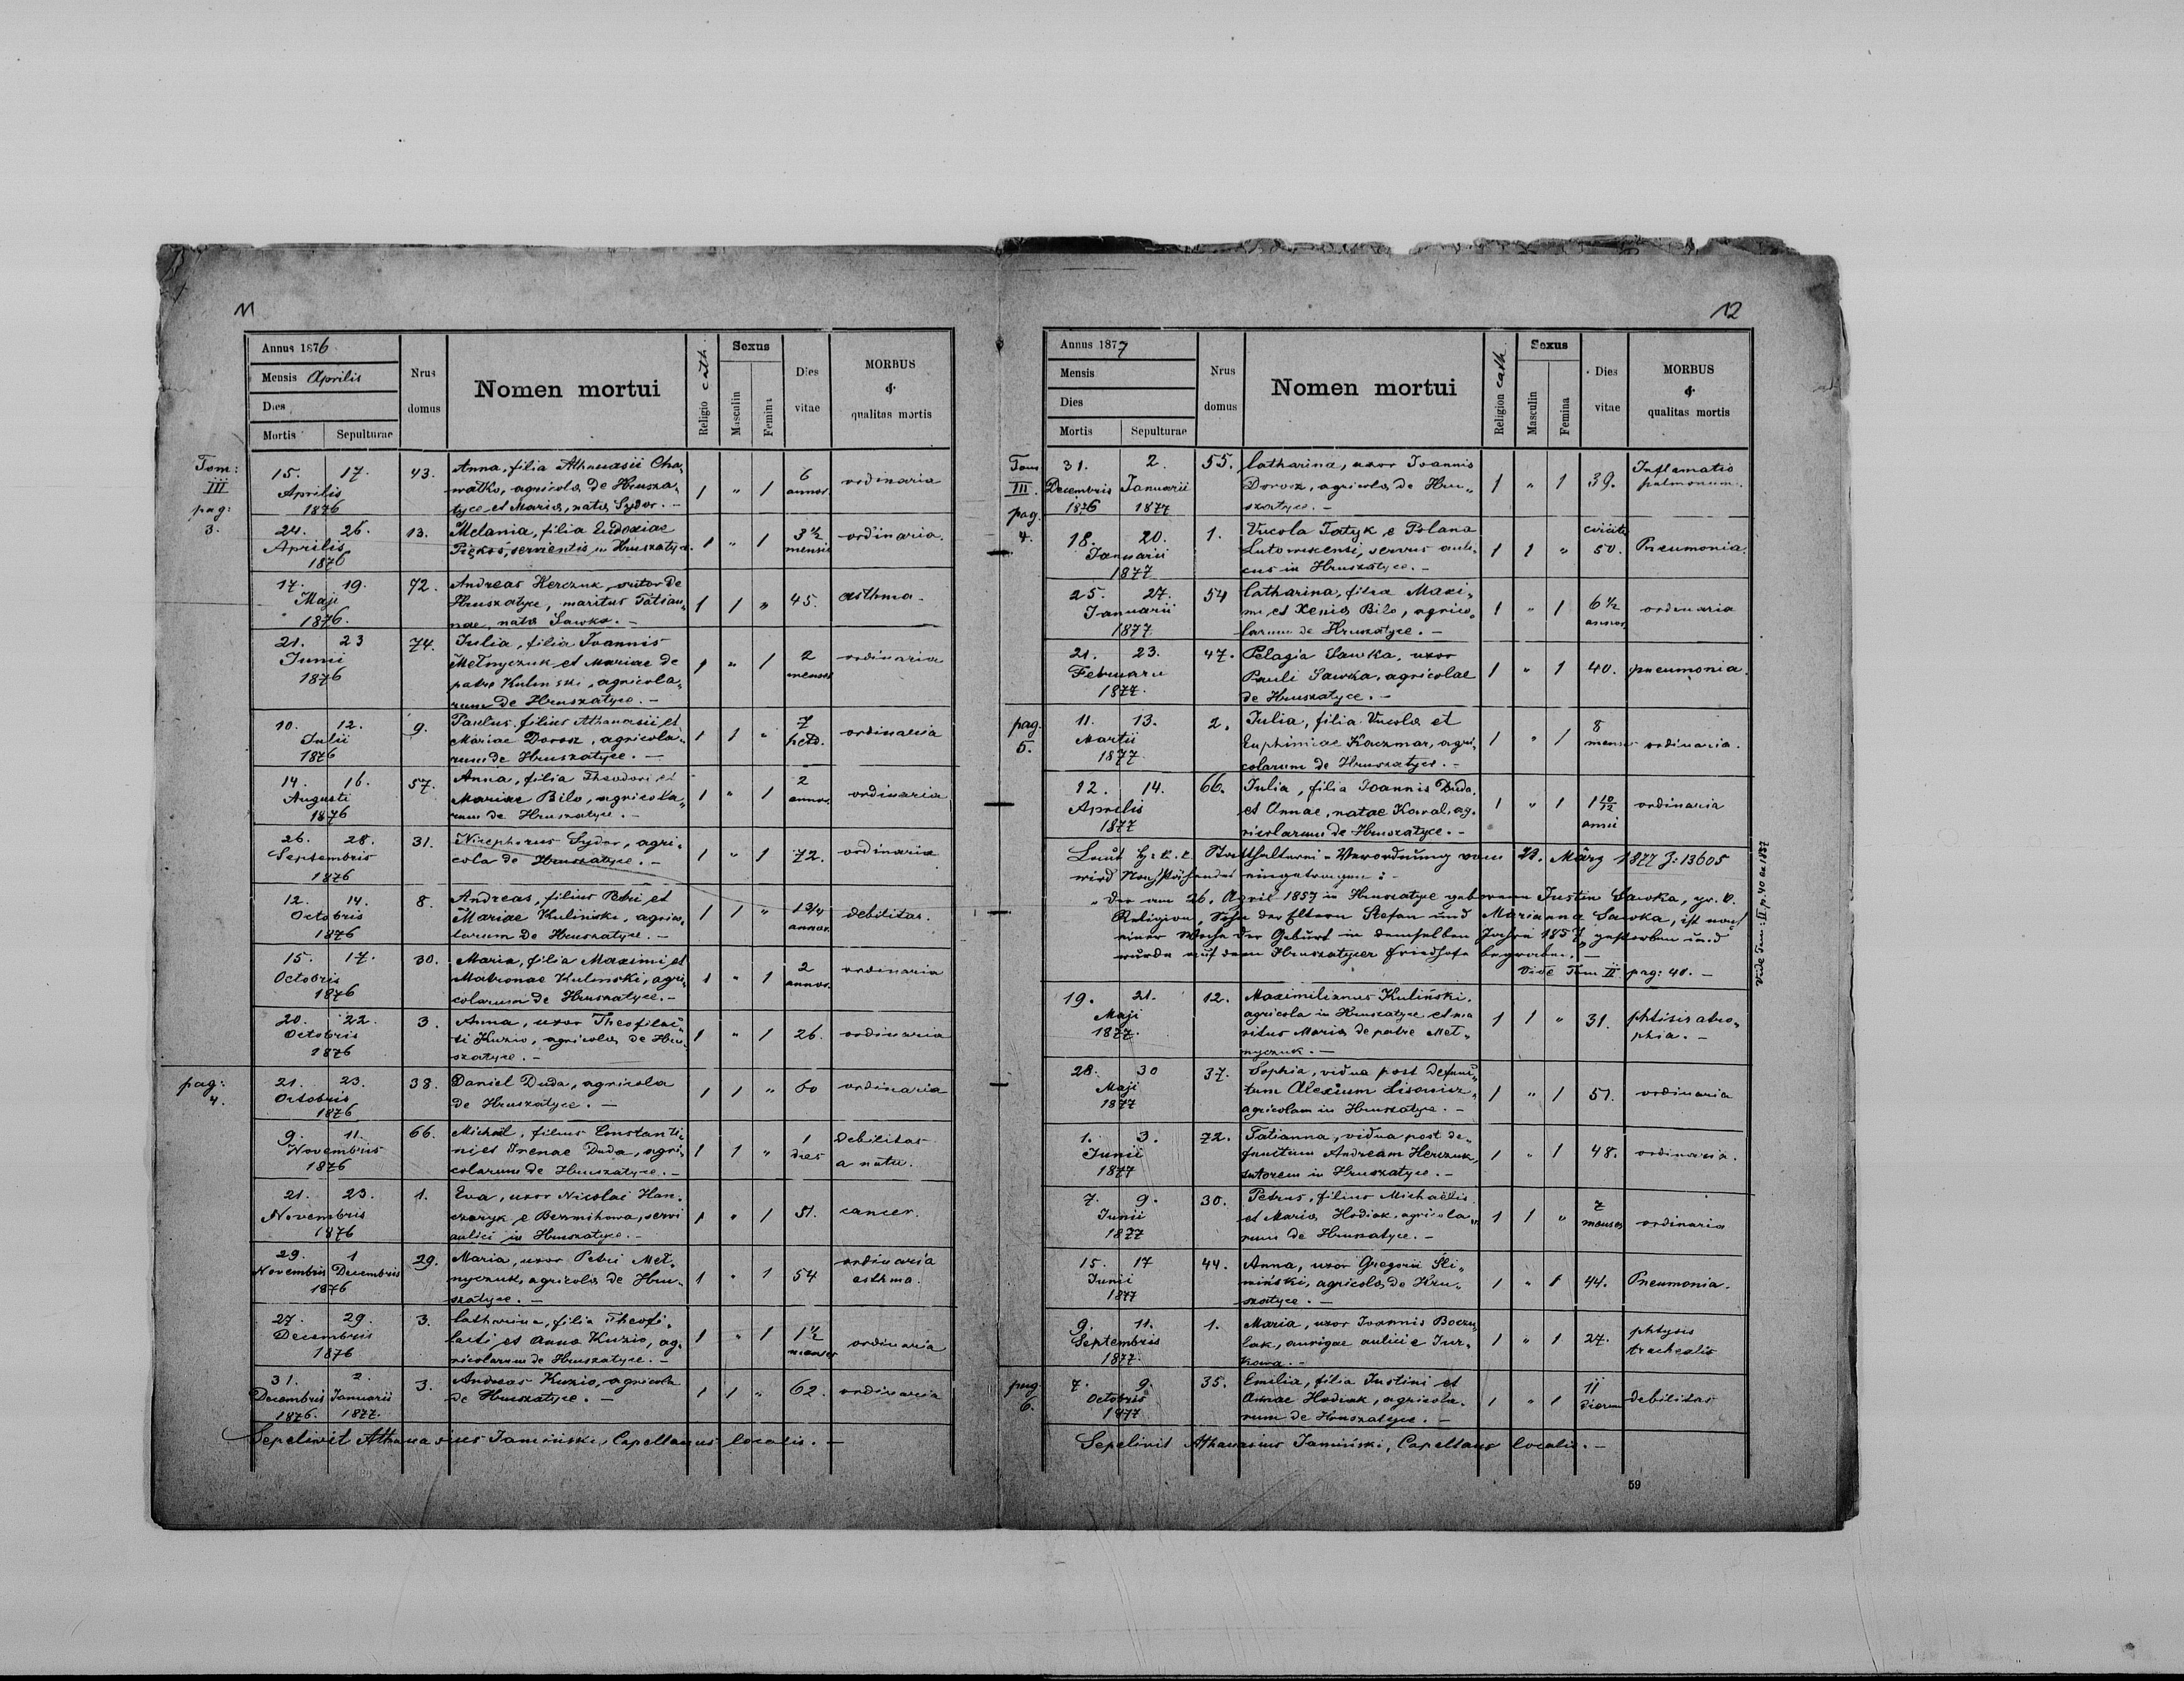 11
Annus 1876
Mensis Aprilis
Dies
Mortis Sepulturae
Nrus domus
Nomen mortui
Religio cath.
Sexus
Masculin Femina
Dies vitae
MORBUS & qualitas mortis
Tom: III pag: 3.
15. 17. 43. Anna, filia Athanasii Cha- 6 ordinaria
Aprilis watko, agricola de Hrusza- 1 " 1 annor.
1876 tyce et Maria, nata Sydor. -
24. 26. 13. Melania, filia Eudoxiae 3 1/2 ordinaria.
Aprilis Piękoś, servientis in Hruszatyce. 1 " 1 mensis
1876
17. 19. 72. Andreas Herczuk, sutor de
Maji Hruszatyce, maritus Tatian- 1 1 " 45. asthma.
1876. nae, nata Sawka. -
21. 23 74. Julia, filia Joannis
Junii Mełnyczuk et Mariae de 1 " 1 2 ordinaria
1876 patre Kulinski, agricola- menses
rum de Hruszatyce. -
10. 12. 9. Paulus, filius Athanasii et 7
Julii Mariae Dorosz, agricola- 1 1 " hebd. ordinaria
1876 rum de Hruszatyce. -
14. 16. 57. Anna, filia Theodori et 2
Augusti Mariae Bilo, agricola- 1 " 1 annor. ordinaria
1876 rum de Hruszatyce. -
26. 28. 31. Nicephorus Sydor, agri-
Septembris cola de Hruszatyce. - 1 " 1 72. ordinaria
1876
12. 14. 8. Andreas, filius Petri et
Octobris Mariae Kulinski, agrico- 1 1 " 1 3/4 debilitas.
1876 larum de Hruszatyce. - annor.
15. 17. 30. Maria, filia Maximi et
Octobris Matronae Kulinski, agri- 1 " 1 2 ordinaria
1876 colarum de Hruszatyce. - annor.
20. 22. 3. Anna, uxor Theofilac-
Octobris ti Kuzio, agricola de Hru- 1 " 1 26. ordinaria
1876 szatyce. -
pag: 4.
21. 23. 38. Daniel Duda, agricola
Octobris de Hruszatyce. - 1 1 " 60 ordinaria
1876
9. 11. 66. Michael, filius Constanti- 1 debilitas
Novembris ni et Irenae Duda, agri- 1 1 " dies a natu.
1876 colarum de Hruszatyce. -
21. 23. 1. Eva, uxor Nicolai Han-
Novembris czaryk e Bezmihowa, servi 1 " 1 51. cancer.
1876 aulici in Hruszatyce. -
29. 1 29. Maria, uxor Petri Meł- ordinaria
Novembris Decembris nyczuk, agricola de Hru- 1 " 1 54 asthma.
1876 szatyce. -
27. 29. 3. Catharina, filia Theofi-
Decembris lacti et Anna Kuzio, ag- 1 " 1 1 1/2 ordinaria
1876 ricolarum de Hruszatyce. - menses
31. 2. 3. Andreas Kuzio, agricola
Decembris Januarii de Hruszatyce. - 1 1 " 62. ordinaria
1876. 1877.
Sepelivit Athanasius Jamiński, Capellanus localis. -
12
Annus 1877
Mensis
Dies
Mortis Sepulturae
Nrus domus
Nomen mortui
Religion cath.
Sexus
Masculin Femina
Dies vitae
MORBUS & qualitas mortis
Tom III. pag. 4.
31. 2. 55. Catharina, uxor Joannis Inflamatio
Decembris Januarii Dorosz, agricola de Hru- 1 " 1 39. pulmonum.
1876 1877 szatyce. -
18. 20. 1. Vucola Tatyk e Polana circiter
Januarii Lutowiscensi, servus auli- 1 1 " 50. Pneumonia.
1877 cus in Hruszatyce. -
25. 27. 54 Catharina, filia Maxi-
Januarii mi et Xenia Bilo, agrico- 1 " 1 6 1/2 ordinaria
1877 larum de Hruszatyce. - annor.
21. 23. 47. Pelagia Sawka, uxor
Februarii Pauli Sawka, agricolae 1 " 1 40. pneumonia.
1877. de Hruszatyce. -
pag. 5.
11. 13. 2. Julia, filia Vucola et 8
Martii Euphimiae Kaczmar, agri- 1 " 1 menses ordinaria.
1877 colarum de Hruszatyce. -
12. 14. 66. Julia, filia Joannis Duda,
Aprilis et Annae, natae Kowal, ag- 1 " 1 1 10/12 ordinaria
1877 ricolarum de Hruszatyce. - anni
Laut h: k. k. Statthalterei-Verordnung vom 21. März 1877 Z: 13605
wird Nachstehendes eingetragen: -
"Der am 26. April 1857 in Hruszatyce geborene Justin Sawka, gr. k.
Religion, Sohn der Eltern Stefan und Marianna Sawka, ist nach
einer Woche der Geburt in demselben Jahre 1857, gestorben und
wurde auf dem Hruszatycer Friedhofe begraben. -
Vide Tom II pag: 40. -
19. 21. 12. Maximilianus Kuliński,
Maji agricola in Hruszatyce et ma- 1 1 " 31. phtisis atro-
1877. ritus Maria de patre Meł- phia. -
nyczuk. -
28. 30 37. Sophia, vidua post defunc-
Maji tum Alexium Lisowicz, 1 " 1 51. ordinaria
1877 agricolam in Hruszatyce. -
1. 3. 72. Tatianna, vidua post de-
Junii functum Andream Herczuk, 1 " 1 48. ordinaria.
1877 sutorem in Hruszatyce. -
7. 9. 30. Petrus, filius Michaëlis 7
Junii et Maria Hodiak, agricola- 1 1 " menses ordinaria
1877 rum de Hruszatyce. -
15. 17 44. Anna, uxor Gregorii Sli-
Junii miński, agricola de Hru- 1 " 1 44. Pneumonia.
1877 szatyce. -
9. 11. 1. Maria, uxor Joannis Boczu- phtysis
Septembris lak, aurigae aulici e Jur- 1 " 1 27. trachealis
1877. kowa. -
pag 6.
7. 9. 35. Emilia, filia Justini et 11
Octobris Annae Hodiak, agricola- 1 " 1 dierum debilitas
1877 rum de Hruszatyce. -
Sepelivit Athanasius Jamiński, Capellanus localis. -
Vide Tom: II p: 40 ex 1857
59